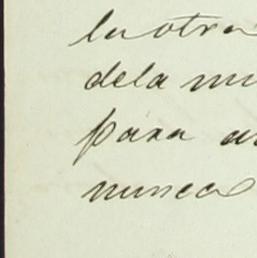 la otra
dela mu
para a
nunca